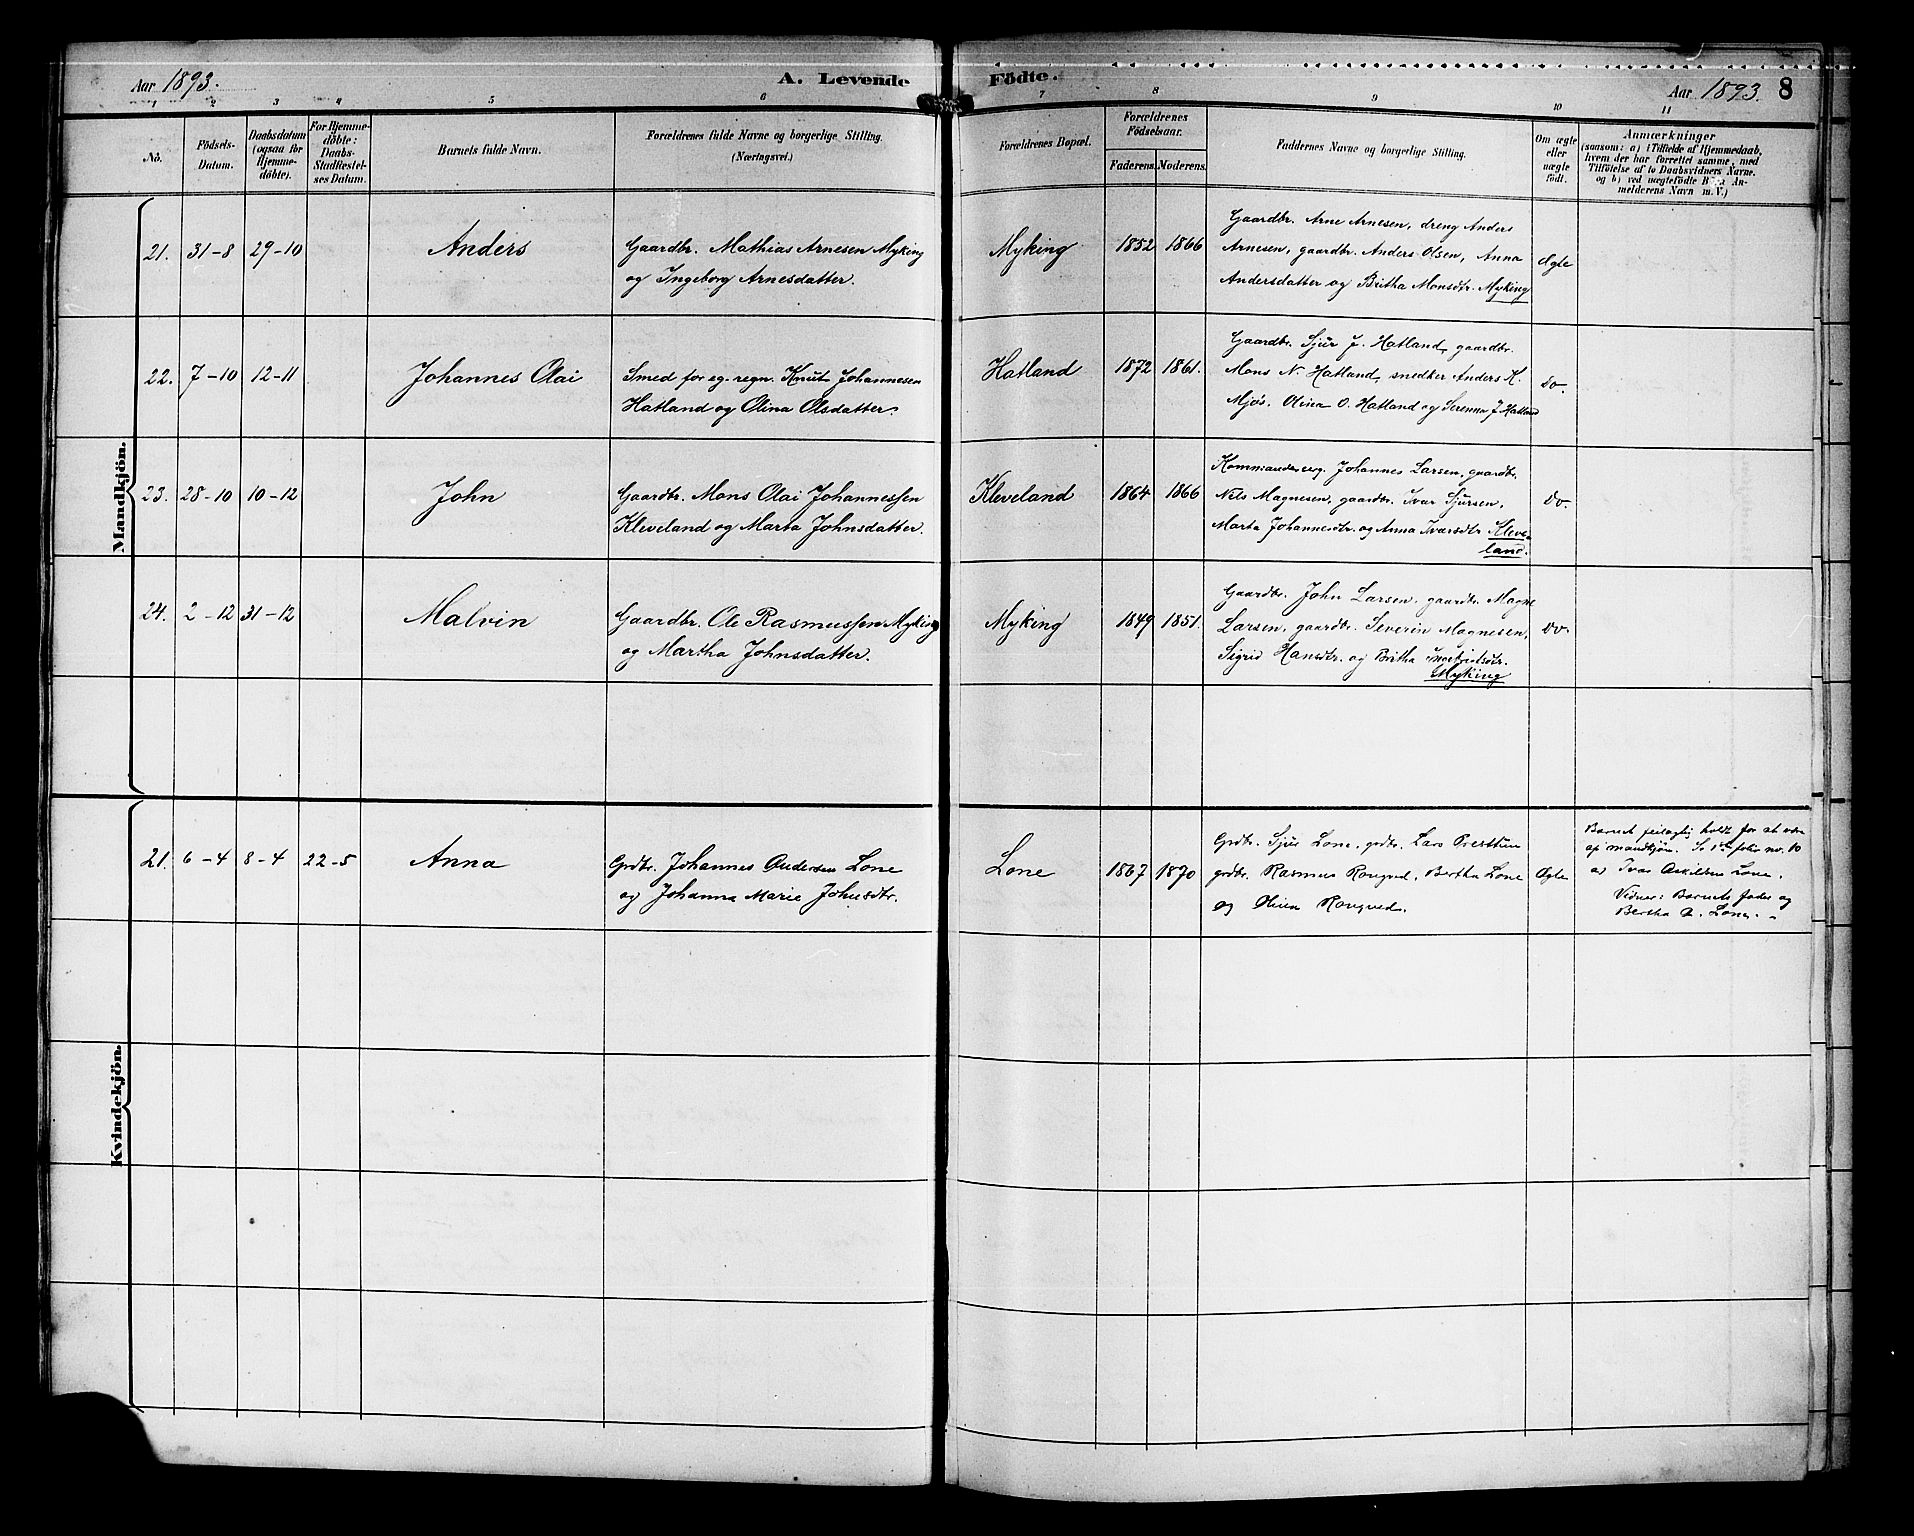 Aar 1893. A. Levende Födte. Aar 1893. 8
1 2 3 4 5 6 7 8 9 10 11
Nö.
Födsels-Datum.
Daabsdatum (ogsaa for Hjemme-döbte).
For Hjemme-döbte: Daabs-Stadfæstel-ses Datum.
Barnets fulde Navn.
Forældrenes fulde Navne og borgerlige Stilling.
(Næringsvei.)
Forældrenes Bopæl.
Forældrenes Födselsaar.
Faderens. Moderens.
Faddernes Navne og borgerlige Stilling.
Om ægte eller uægte födt.
Anmærkninger
(saasom: a) i Tilfælde af Hjemmedaab,
hvem der har forrettet samme, med
Tilföielse af to Daabsvidners Navne.
og b) ved uægtefödte Börn An-
melderens Navn m. V.)
Mandkjön.
21. 31-8 29-10 Anders
Gaardbr. Mathias Arnesen Myking
og Ingeborg Arnesdatter.
Myking 1852 1866
Gaardbr. Arne Arnesen, dreng Anders
Arnesen, gaardbr. Anders Olsen, Anna
Andersdatter og Britha Monsdtr. Myking
Ægte
22. 7-10 12-11 Johannes Olai
Smed for eg. regn. Knut Johannesen
Hatland og Olina Olsdatter.
Hatland 1872 1861.
Gaardbr. Sjur J. Hatland, gaardbr.
Mons N. Hatland, snedker Anders K.
Mjøs. Olina O. Hatland og Serenna J. Hatland
do.
23. 28-10 10-12 John
Gaardbr. Mons Olai Johannessen
Kleveland og Marta Johnsdatter.
Kleveland 1864 1866
Johannes Larsen, gaardbr.
Nils Magnesen, gaardbr. Ivar Sjursen,
Marta Johannesdtr. og Anna Ivarsdtr. Kleve-
land.
do.
24. 2-12 31-12 Malvin
Gaardbr. Ole Rasmussen Myking
og Martha Johnsdatter.
Myking 1849 1851.
Gaardbr. John Larsen, gaardbr. Magne
Larsen, gaardbr. Severin Magnesen,
Sigrid Hansdtr. og Britha
Myking
do.
Kvindekjön.
21. 6-4 8-4 22-5 Anna
Grdbr. Johannes Andersen Lone
og Johanna Marie Johnsdtr.
Lone 1867 1870
Grdbr. Sjur Lone, grdbr. Lars Presttun
grdbr. Rasmus Rongved, Bertha Lone
og Olina Rongved.
Ægte
Barnet feilagtig holdt for at være
af mandkjøn. Se folio no. 10
af Ivar Askilsen Lone.
Vidner: Barnets fader og
Bertha A. Lone.